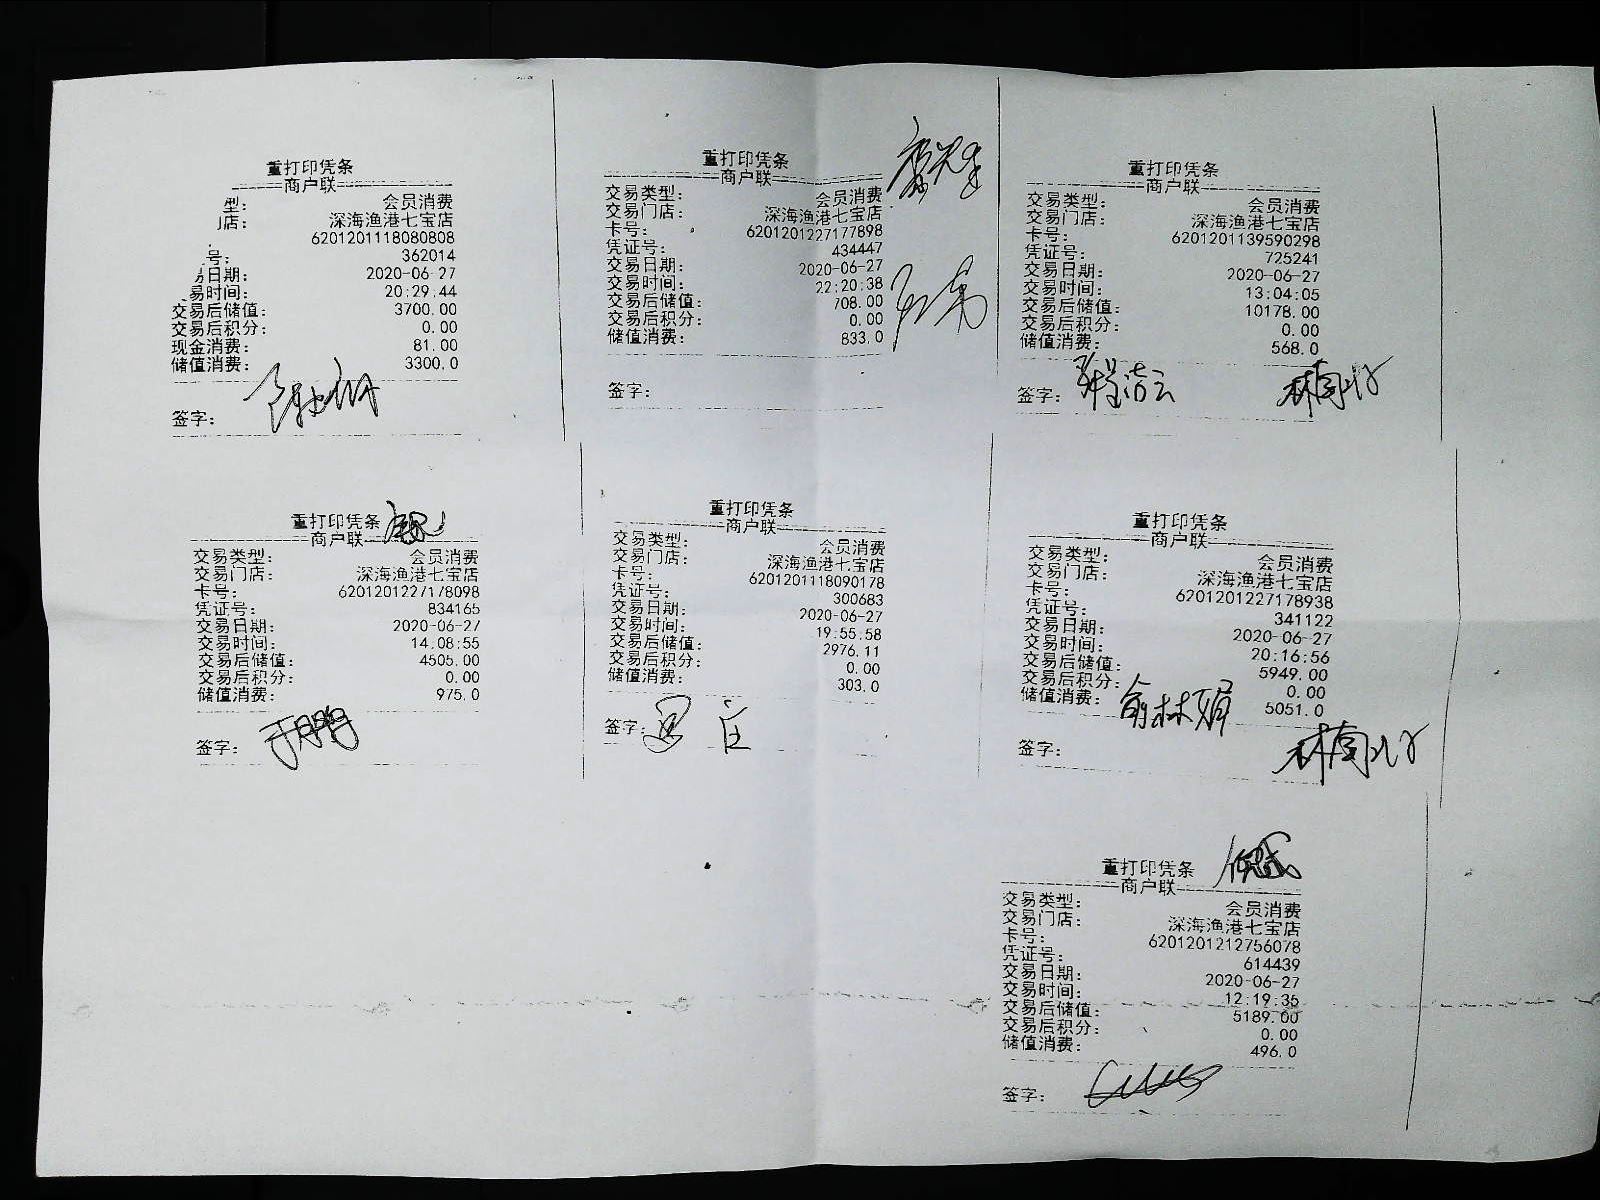 重打印凭条
商户联
型: 会员消费
店: 深海渔港七宝店
6201201118080808
号: 362014
日期: 2020-06-27
易时间: 20:29:44
交易后储值: 3700.00
交易后积分: 0.00
现金消费: 81.00
储值消费: 3300.0
签字:
重打印凭条
商户联
交易类型: 会员消费
交易门店: 深海渔港七宝店
卡号: 6201201227177898
凭证号: 434447
交易日期: 2020-06-27
交易时间: 22:20:38
交易后储值: 708.00
交易后积分: 0.00
储值消费: 833.0
签字:
重打印凭条
商户联
交易类型: 会员消费
交易门店: 深海渔港七宝店
卡号: 6201201139590298
凭证号: 725241
交易日期: 2020-06-27
交易时间: 13:04:05
交易后储值: 10178.00
交易后积分: 0.00
储值消费: 568.0
签字:
重打印凭条
商户联
交易类型: 会员消费
交易门店: 深海渔港七宝店
卡号: 6201201227178098
凭证号: 834165
交易日期: 2020-06-27
交易时间: 14:08:55
交易后储值: 4505.00
交易后积分: 0.00
储值消费: 975.0
签字:
重打印凭条
商户联
交易类型: 会员消费
交易门店: 深海渔港七宝店
卡号: 6201201118090178
凭证号: 300683
交易日期: 2020-06-27
交易时间: 19:55:58
交易后储值: 2976.11
交易后积分: 0.00
储值消费: 303.0
签字:
重打印凭条
商户联
交易类型: 会员消费
交易门店: 深海渔港七宝店
卡号: 6201201227178938
凭证号: 341122
交易日期: 2020-06-27
交易时间: 20:16:56
交易后储值: 5949.00
交易后积分: 0.00
储值消费: 5051.0
签字: 俞林娟
重打印凭条
商户联
交易类型: 会员消费
交易门店: 深海渔港七宝店
卡号: 6201201212756078
凭证号: 614439
交易日期: 2020-06-27
交易时间: 12:19:35
交易后储值: 5189.00
交易后积分: 0.00
储值消费: 496.0
签字: